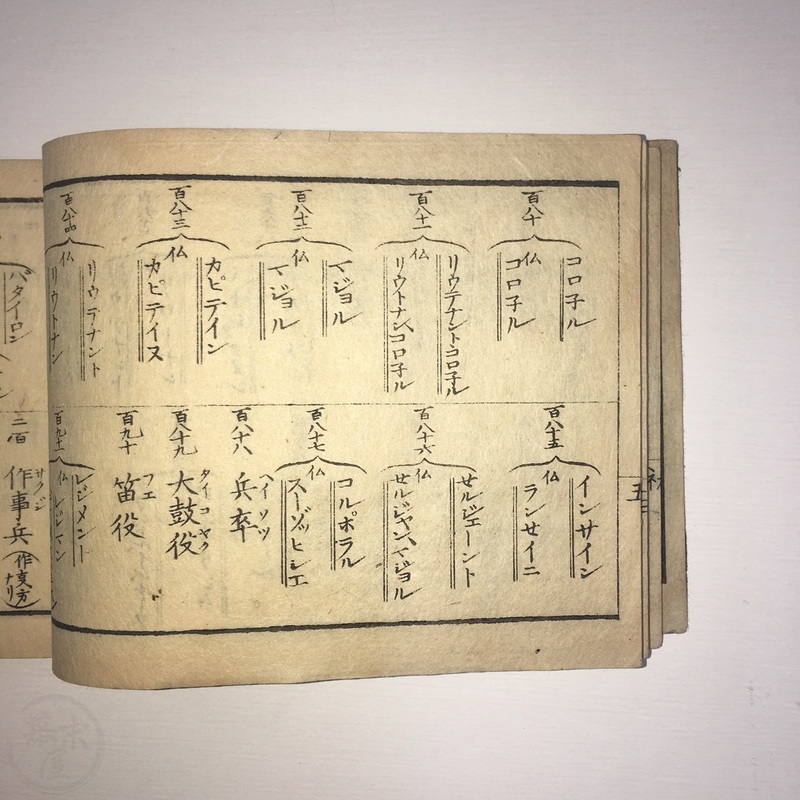 百八十
コロ子ル
仏
コロ子ル
百八十一
リウテナントコロ子ル
仏
リウトナンコロ子ル
百八十二
マジョル
仏
マジョル
百八十三
カピテイン
仏
カピテイヌ
百八十四
リウテナント
仏
リウトナン
百八十五
インサイン
仏
ランセイニ
百八十六
セルジェーント
仏
セルジャンマジョル
百八十七
コルポラル
仏
スーゾッヒシエ
百八十八
兵卒
ヘイソツ
百八十九
大鼓役
タイコヤク
百九十
笛役
フエ
百九十一
レジメント
仏
レジマン
バタイロン
三百
作事兵
サクジ
五